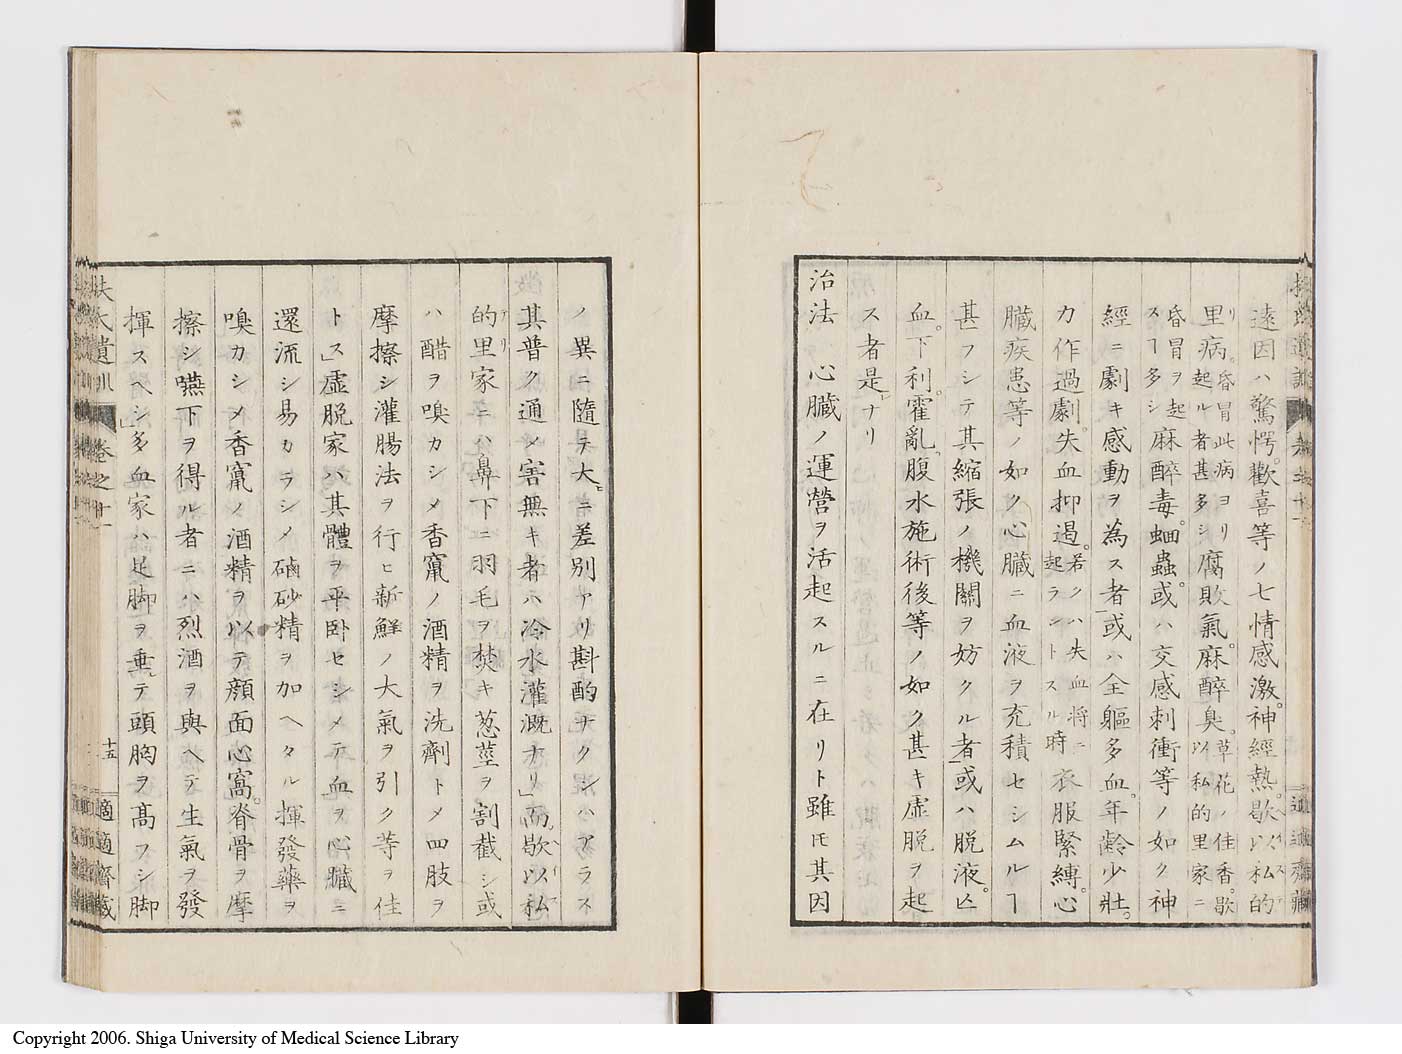 遠因ハ驚愕。歡喜等ノ七情感激。神經熱。歇以私的
里病。昏冒此病ヨリ起ル者甚多シ 腐敗氣。麻醉臭。草花ノ佳香。歇以私的里家ニ
昏冒ヲ起スヿ多シ 麻醉毒。蛔蟲。或ハ交感刺衝等ノ如ク神
經ニ劇キ感動ヲ為ス者 或ハ全軀多血。年齡少壯。心
力作過劇。失血抑遏。若クハ失血將ニ起ラントスル時 衣服緊縛。心
臟疾患等ノ如ク心臟ニ血液ヲ充積セシムルヿ
甚フシテ其縮張ノ機關ヲ妨クル者 或ハ脱液。亡
血。下利。霍亂。腹水施術後等ノ如ク甚キ虚脱ヲ起
ス者是ナリ
治法 心臟ノ運營ヲ活起スルニ在リト雖モ其因
ノ異ニ隨テ大ニ差別アリ斟酌ナクンハアラス
其普ク通メ害無キ者ハ冷水灌漑ナリ」而歇以私
的里家ニハ鼻下ニ羽毛ヲ焚キ葱莖ヲ割截シ或
ハ醋ヲ嗅カシメ香竄ノ酒精ヲ洗劑トメ四肢ヲ
摩擦シ灌腸法ヲ行ヒ新鮮ノ大氣ヲ引ク等ヲ佳
トス」虚脱家ハ其體ヲ平卧セシメテ血ヲ心臟ニ
還流シ易カラシメ磠砂精ヲ加ヘタル揮發藥ヲ
嗅カシメ香竄ノ酒精ヲ以テ顔面心窩。脊骨ヲ摩
擦シ嚥下ヲ得ル者ニハ烈酒ヲ與ヘテ生氣ヲ發
揮スヘシ」多血家ハ足脚ヲ垂レテ頭胸ヲ高フシ脚
扶氏遺訓 卷之十一 十五 適適齋藏
Copyright 2006. Shiga University of Medical Science Library